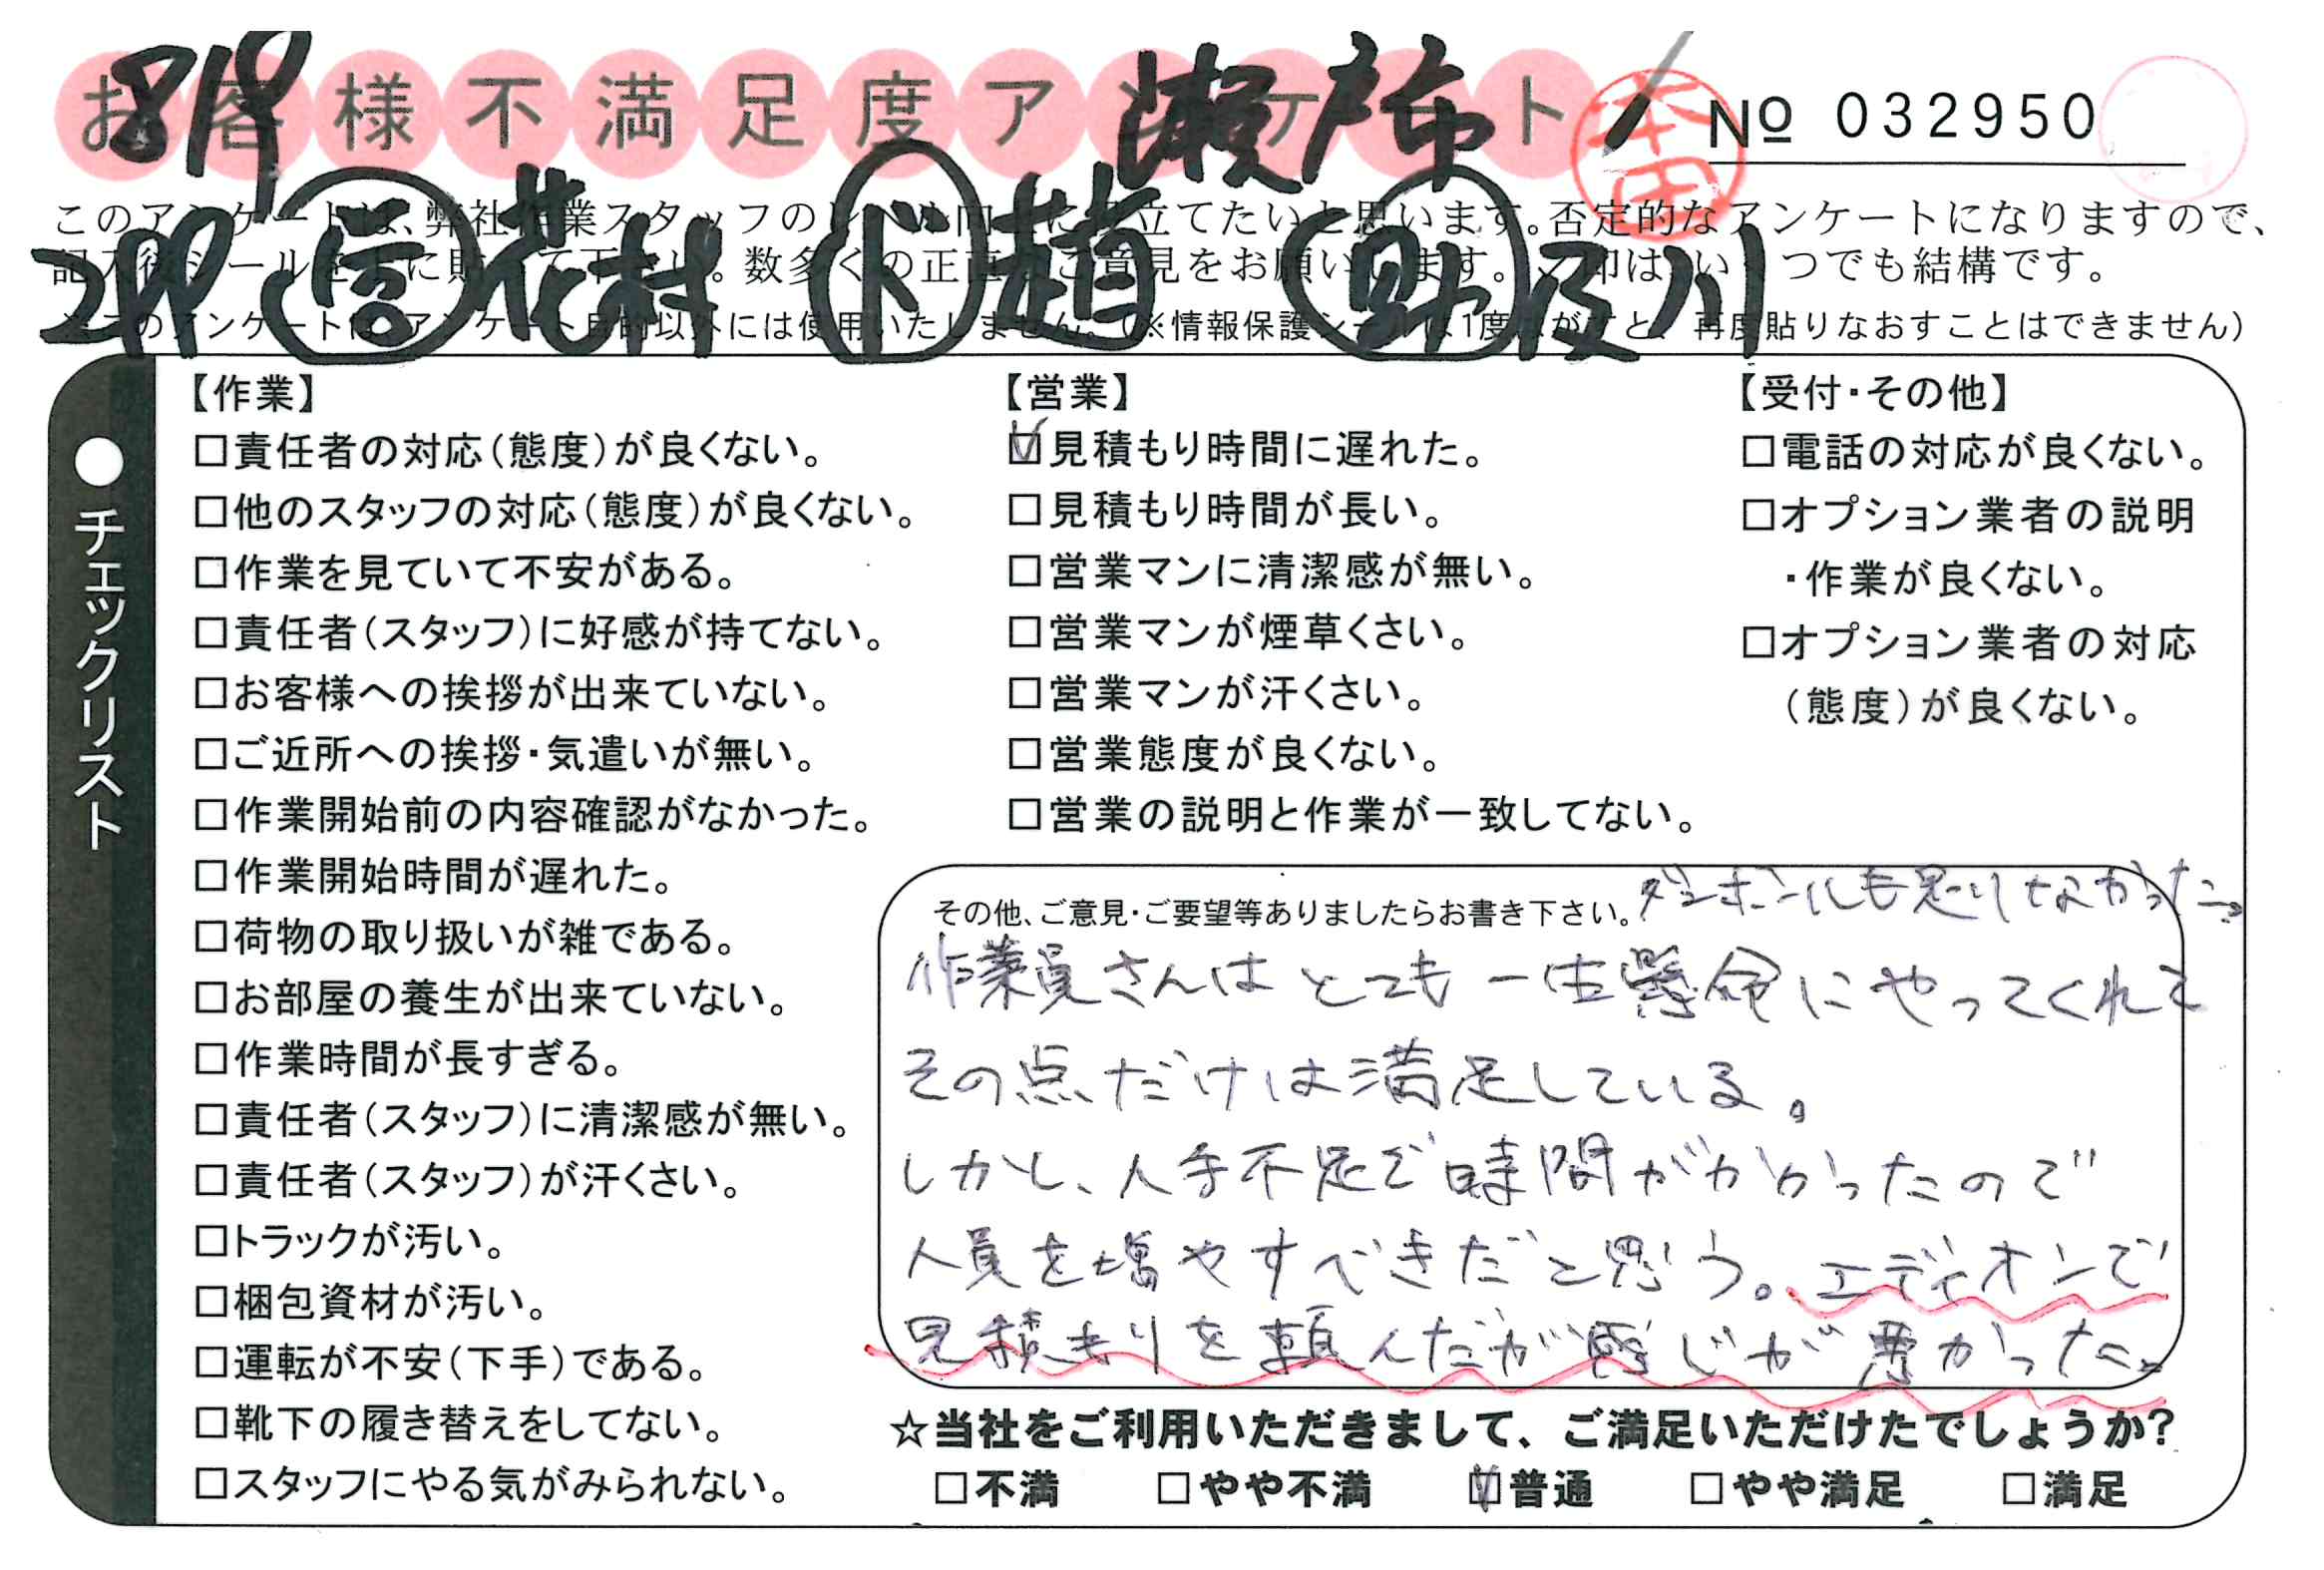 お客様不満足度アンケート
8/9
瀬戸市
本田
№ 032950
このアンケートは、弊社作業スタッフのレベル向上に役立てたいと思います。否定的なアンケートになりますので、
記入後シールを上に貼って下さい。数多くの正直なご意見をお願いします。✓印は、いくつでも結構です。
花村 ド 趙 助 及川
※このアンケートは、アンケート目的以外には使用いたしません。(※情報保護シールは1度はがすと、再度貼りなおすことはできません)
●チェックリスト
【作業】
□責任者の対応(態度)が良くない。
□他のスタッフの対応(態度)が良くない。
□作業を見ていて不安がある。
□責任者(スタッフ)に好感が持てない。
□お客様への挨拶が出来ていない。
□ご近所への挨拶・気遣いが無い。
□作業開始前の内容確認がなかった。
□作業開始時間が遅れた。
□荷物の取り扱いが雑である。
□お部屋の養生が出来ていない。
□作業時間が長すぎる。
□責任者(スタッフ)に清潔感が無い。
□責任者(スタッフ)が汗くさい。
□トラックが汚い。
□梱包資材が汚い。
□運転が不安(下手)である。
□靴下の履き替えをしてない。
□スタッフにやる気がみられない。
【営業】
☑見積もり時間に遅れた。
□見積もり時間が長い。
□営業マンに清潔感が無い。
□営業マンが煙草くさい。
□営業マンが汗くさい。
□営業態度が良くない。
□営業の説明と作業が一致してない。
【受付・その他】
□電話の対応が良くない。
□オプション業者の説明
・作業が良くない。
□オプション業者の対応
(態度)が良くない。
その他、ご意見・ご要望等ありましたらお書き下さい。
ダンボールも足りなかった。
作業員さんはとても一生懸命にやってくれて
その点だけは満足している。
しかし、人手不足で時間がかかったので
人員を増やすべきだと思う。エディオンで
見積もりを頼んだが感じが悪かった。
☆当社をご利用いただきまして、ご満足いただけたでしょうか?
□不満 □やや不満 ☑普通 □やや満足 □満足